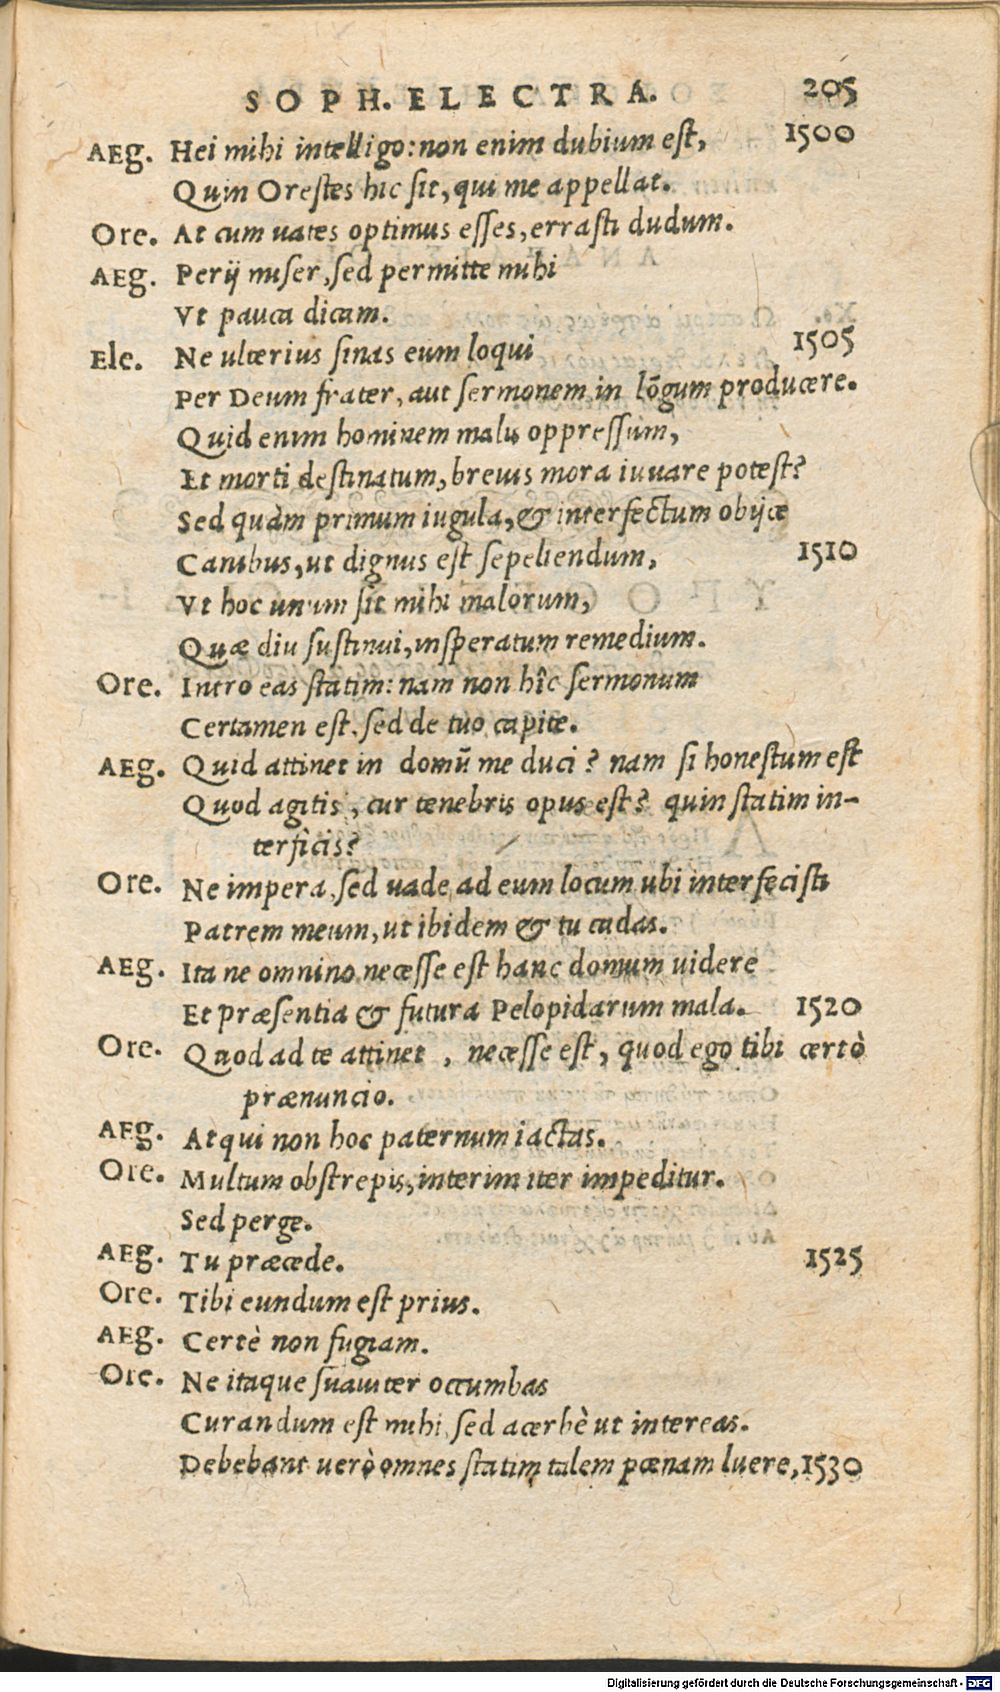 SOPH. ELECTRA. 205
AEg. Hei mihi intelligo: non enim dubium est, 1500
Quin Orestes hic sit, qui me appellat.
Ore. At cum uates optimus esses, errasti dudum.
AEg. Perij miser, sed permitte mihi
Vt pauca dicam.
Ele. Ne ulterius sinas eum loqui 1505
Per Deum frater, aut sermonem in lõgum producere.
Quid enim hominem malis oppressum,
Et morti destinatum, breuis mora iuuare potest?
Sed quàm primum iugula, & interfectum obijce
Canibus, ut dignus est sepeliendum, 1510
Vt hoc unum sit mihi malorum,
Quæ diu sustinui, insperatum remedium.
Ore. Intro eas statim: nam non hîc sermonum
Certamen est, sed de tuo capite.
AEg. Quid attinet in domũ me duci? nam si honestum est
Quod agitis, cur tenebris opus est? quin statim in-
terficis?
Ore. Ne impera, sed uade ad eum locum ubi interfecisti
Patrem meum, ut ibidem & tu cadas.
AEg. Ita ne omnino necesse est hanc domum uidere
Et præsentia & futura Pelopidarum mala. 1520
Ore. Quod ad te attinet, necesse est, quod ego tibi certò
prænuncio.
AEg. Atqui non hoc paternum iactas.
Ore. Multum obstrepis, interim iter impeditur.
Sed perge.
AEg. Tu præcede. 1525
Ore. Tibi eundum est prius.
AEg. Certè non fugiam.
Ore. Ne itaque suauiter occumbas
Curandum est mihi, sed acerbè ut intereas.
Debebant uerò omnes statim talem pœnam luere, 1530
Digitalisierung gefördert durch die Deutsche Forschungsgemeinschaft - DFG